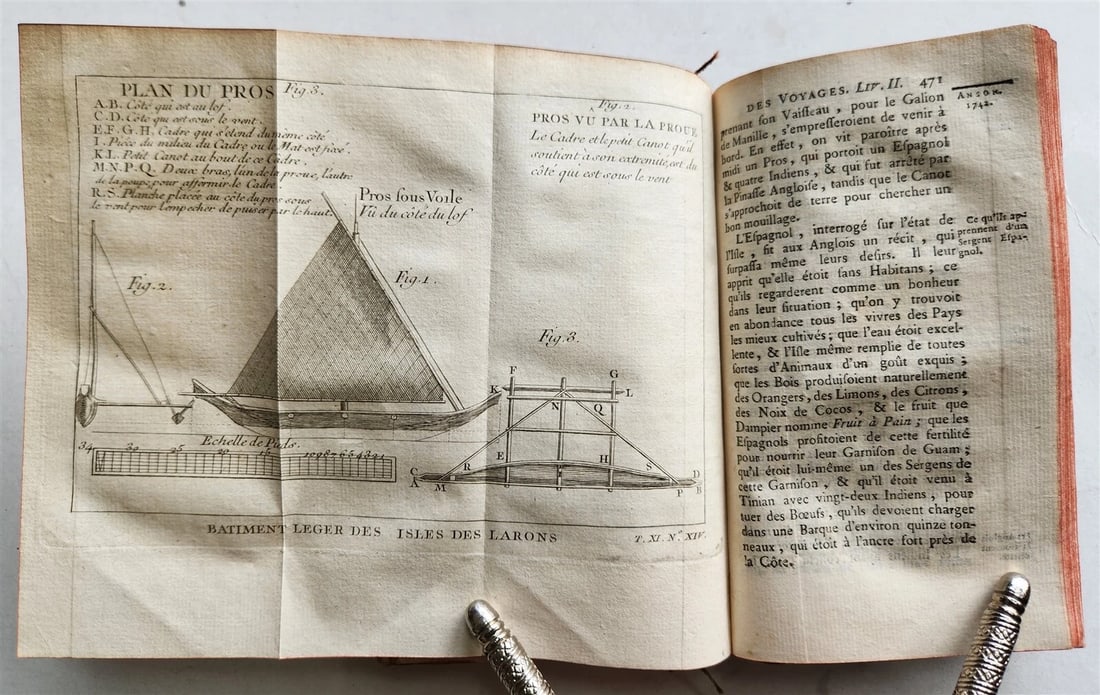 PLAN DU PROS Fig. 3.
A.B. Côté qui est au lof.
C.D. Côté qui est sous le vent.
E.F.G.H. Cadre qui s'étend du même côté
I. Pièce du milieu du Cadre ou le Mat est fixé.
K.L. Petit Canot au bout de ce Cadre.
M.N.P.Q. Deux bras, l'un de la proue, l'autre
de la poupe pour affermir le Cadre.
R.S. Planche placée au côté du pros sous
le vent pour l'empecher de puiser par le haut.
Fig. 2.
PROS VU PAR LA PROUE
Le Cadre et le petit Canot qu'il
soutient à son extremité, est du
côté qui est sous le vent
Pros sous Voile
Vû du côté du lof
Fig. 2.
Fig. 1.
Fig. 3.
F G
K L
N Q
E H
C R S D
A M P B
Echelle de Pieds.
34 30 25 20 15 10 9 8 7 6 5 4 3 2 1
BATIMENT LEGER DES ISLES DES LARONS
T. XI. N.º XIV.
DES VOYAGES. LIV. II. 471
ANSON.
1742.
prenant son Vaisseau, pour le Galion
de Manille, s'empresseroient de venir à
bord. En effet, on vit paroître après
midi un Pros, qui portoit un Espagnol
& quatre Indiens, & qui fut arrêté par
la Pinasse Angloise, tandis que le Canot
s'approchoit de terre pour chercher un
bon mouillage.
L'Espagnol, interrogé sur l'état de
l'Isle, fit aux Anglois un récit, qui
surpassa même leurs desirs. Il leur
apprit qu'elle étoit sans Habitans; ce
qu'ils regarderent comme un bonheur
dans leur situation; qu'on y trouvoit
en abondance tous les vivres des Pays
les mieux cultivés; que l'eau étoit excel-
lente, & l'Isle même remplie de toutes
sortes d'Animaux d'un goût exquis;
que les Bois produisoient naturellement
des Orangers, des Limons, des Citrons,
des Noix de Cocos, & le fruit que
Dampier nomme Fruit à Pain; que les
Espagnols profitoient de cette fertilité
pour nourrir leur Garnison de Guam;
qu'il étoit lui-même un des Sergens de
cette Garnison, & qu'il étoit venu à
Tinian avec vingt-deux Indiens, pour
tuer des Bœufs, qu'ils devoient charger
dans une Barque d'environ quinze ton-
neaux, qui étoit à l'ancre fort près de
la Côte.
Ce qu'ils ap-
prennent d'un
Sergent Espa-
gnol.